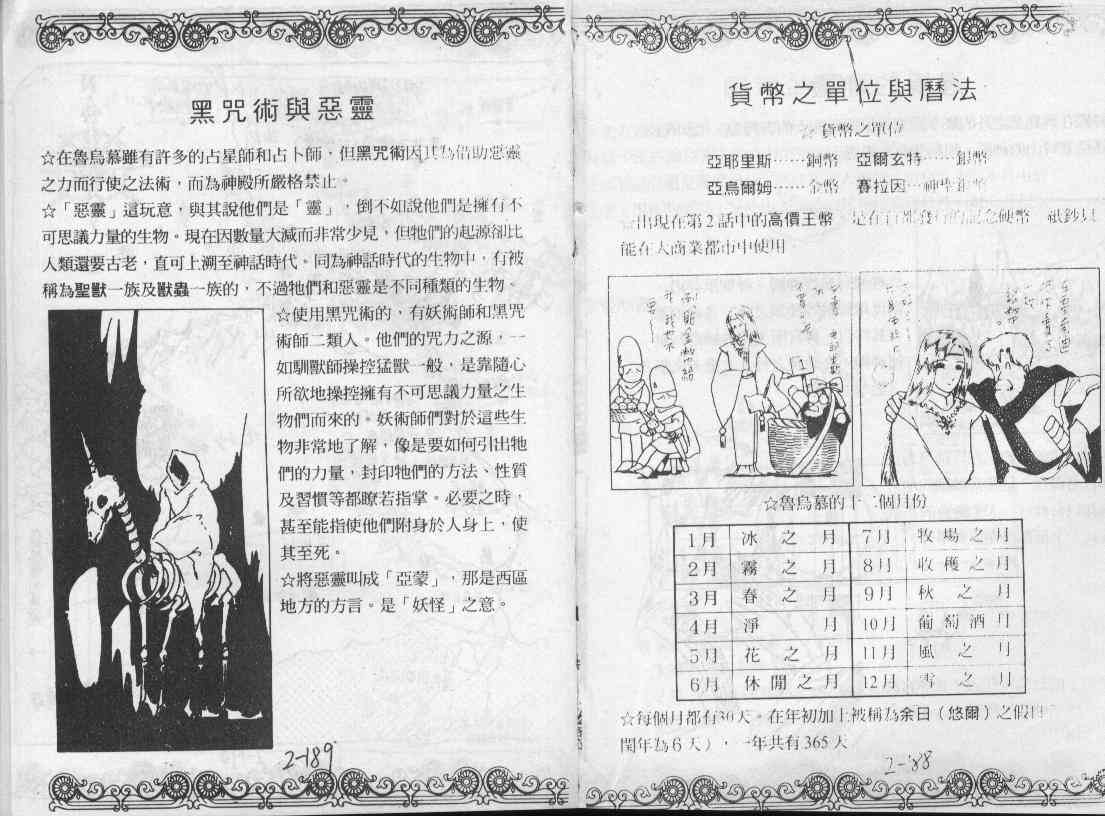 黑咒術與惡靈
☆在魯烏慕雖有許多的占星師和占卜師，但黑咒術因其為借助惡靈
之力而行使之法術，而為神殿所嚴格禁止。
☆「惡靈」這玩意，與其說他們是「靈」，倒不如說他們是擁有不
可思議力量的生物。現在因數量大減而非常少見，但牠們的起源卻比
人類還要古老，直可上溯至神話時代。同為神話時代的生物中，有被
稱為聖獸一族及獸蟲一族的，不過牠們和惡靈是不同種類的生物
☆使用黑咒術的，有妖術師和黑咒
術師二類人。他們的咒力之源，一
如馴獸師操控猛獸一般，是靠隨心
所欲地操控擁有不可思議力量之生
物們而來的。妖術師們對於這些生
物非常地了解，像是要如何引出牠
們的力量，封印牠們的方法、性質
及習慣等都瞭若指掌。必要之時，
甚至能指使他們附身於人身上，使
其至死。
☆將惡靈叫成「亞蒙」，那是西區
地方的方言。是「妖怪」之意。
2-189
貨幣之單位與曆法
☆貨幣之單位
亞耶里斯……銅幣 亞爾玄特……銀幣
亞烏爾姆……金幣 賽拉因…神聖銀幣
☆出現在第2話中的高價王幣 是在 紀念硬幣 紙鈔只
能在大商業都市中使用
☆魯烏慕的十二個月份
1月 冰之月 7月 牧場之月
2月 霧之月 8月 收穫之月
3月 春之月 9月 秋之月
4月 淨月 10月 葡萄酒月
5月 花之月 11月 風之月
6月 休閒之月 12月 雪之月
☆每個月都有30天。在年初加上被稱為余日（悠爾）之假日
閏年為6天），一年共有365天
2-188